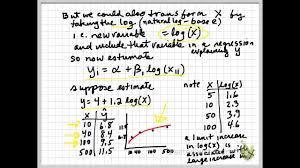 But we could also transform X by
taking the log (natural log - base e)
i.e. new variable = log(x)
and include that variable in a regression
explaining y
So now estimate
yi = α + β, log(x1i)
Suppose estimate
y = 4 + 1.2 log(x)
X ŷ
10 6.8
40 8.4
100
500 11.5
5 40 100 500
note X log(x)
5 1.6
10 2.3
50 3.9
100 4.6
a 1 unit increase
in log(x) is
associated with
large increase